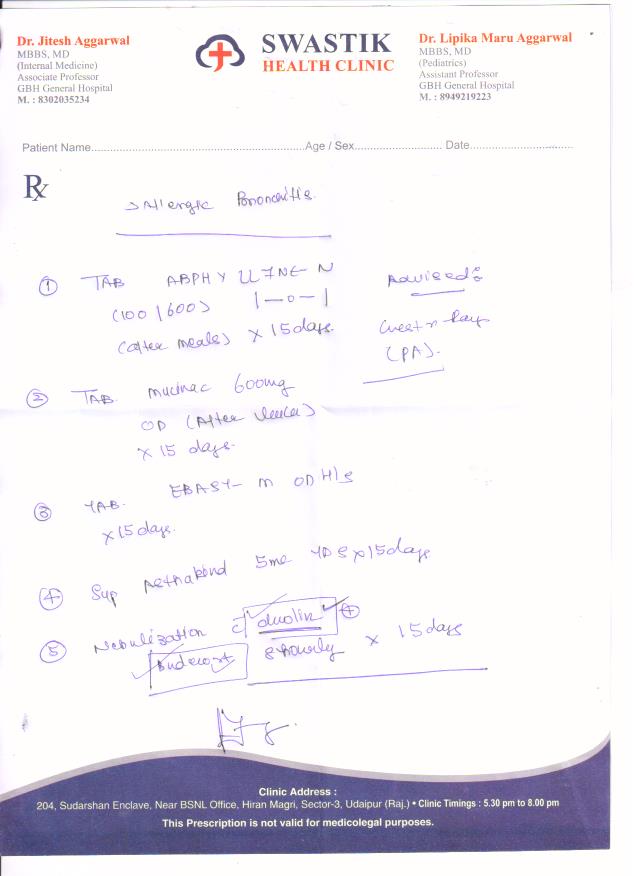 Dr. Jitesh Aggarwal
MBBS, MD
(Internal Medicine)
Associate Professor
GBH General Hospital
M. : 8302035234
SWASTIK
HEALTH CLINIC
Dr. Lipika Maru Aggarwal
MBBS, MD
(Pediatrics)
Assistant Professor
GBH General Hospital
M. : 8949219223
Patient Name.......................................................Age / Sex........................ Date............................
Rx
Allergic
① TAB ABPHYLLINE-N
(100/600) 1—0—1
(after meals) x 15 days
Advised:
Chest X Ray
(PA).
② TAB. Mucinac 600mg
OD (After
x 15 days.
③ TAB. EBASY-M OD H/s
x 15 days.
④ Syp 5ml TDS x 15 days
⑤ Nebulization c duolin +
Budecort 8 hourly x 15 days
Clinic Address :
204, Sudarshan Enclave, Near BSNL Office, Hiran Magri, Sector-3, Udaipur (Raj.) • Clinic Timings : 5.30 pm to 8.00 pm
This Prescription is not valid for medicolegal purposes.